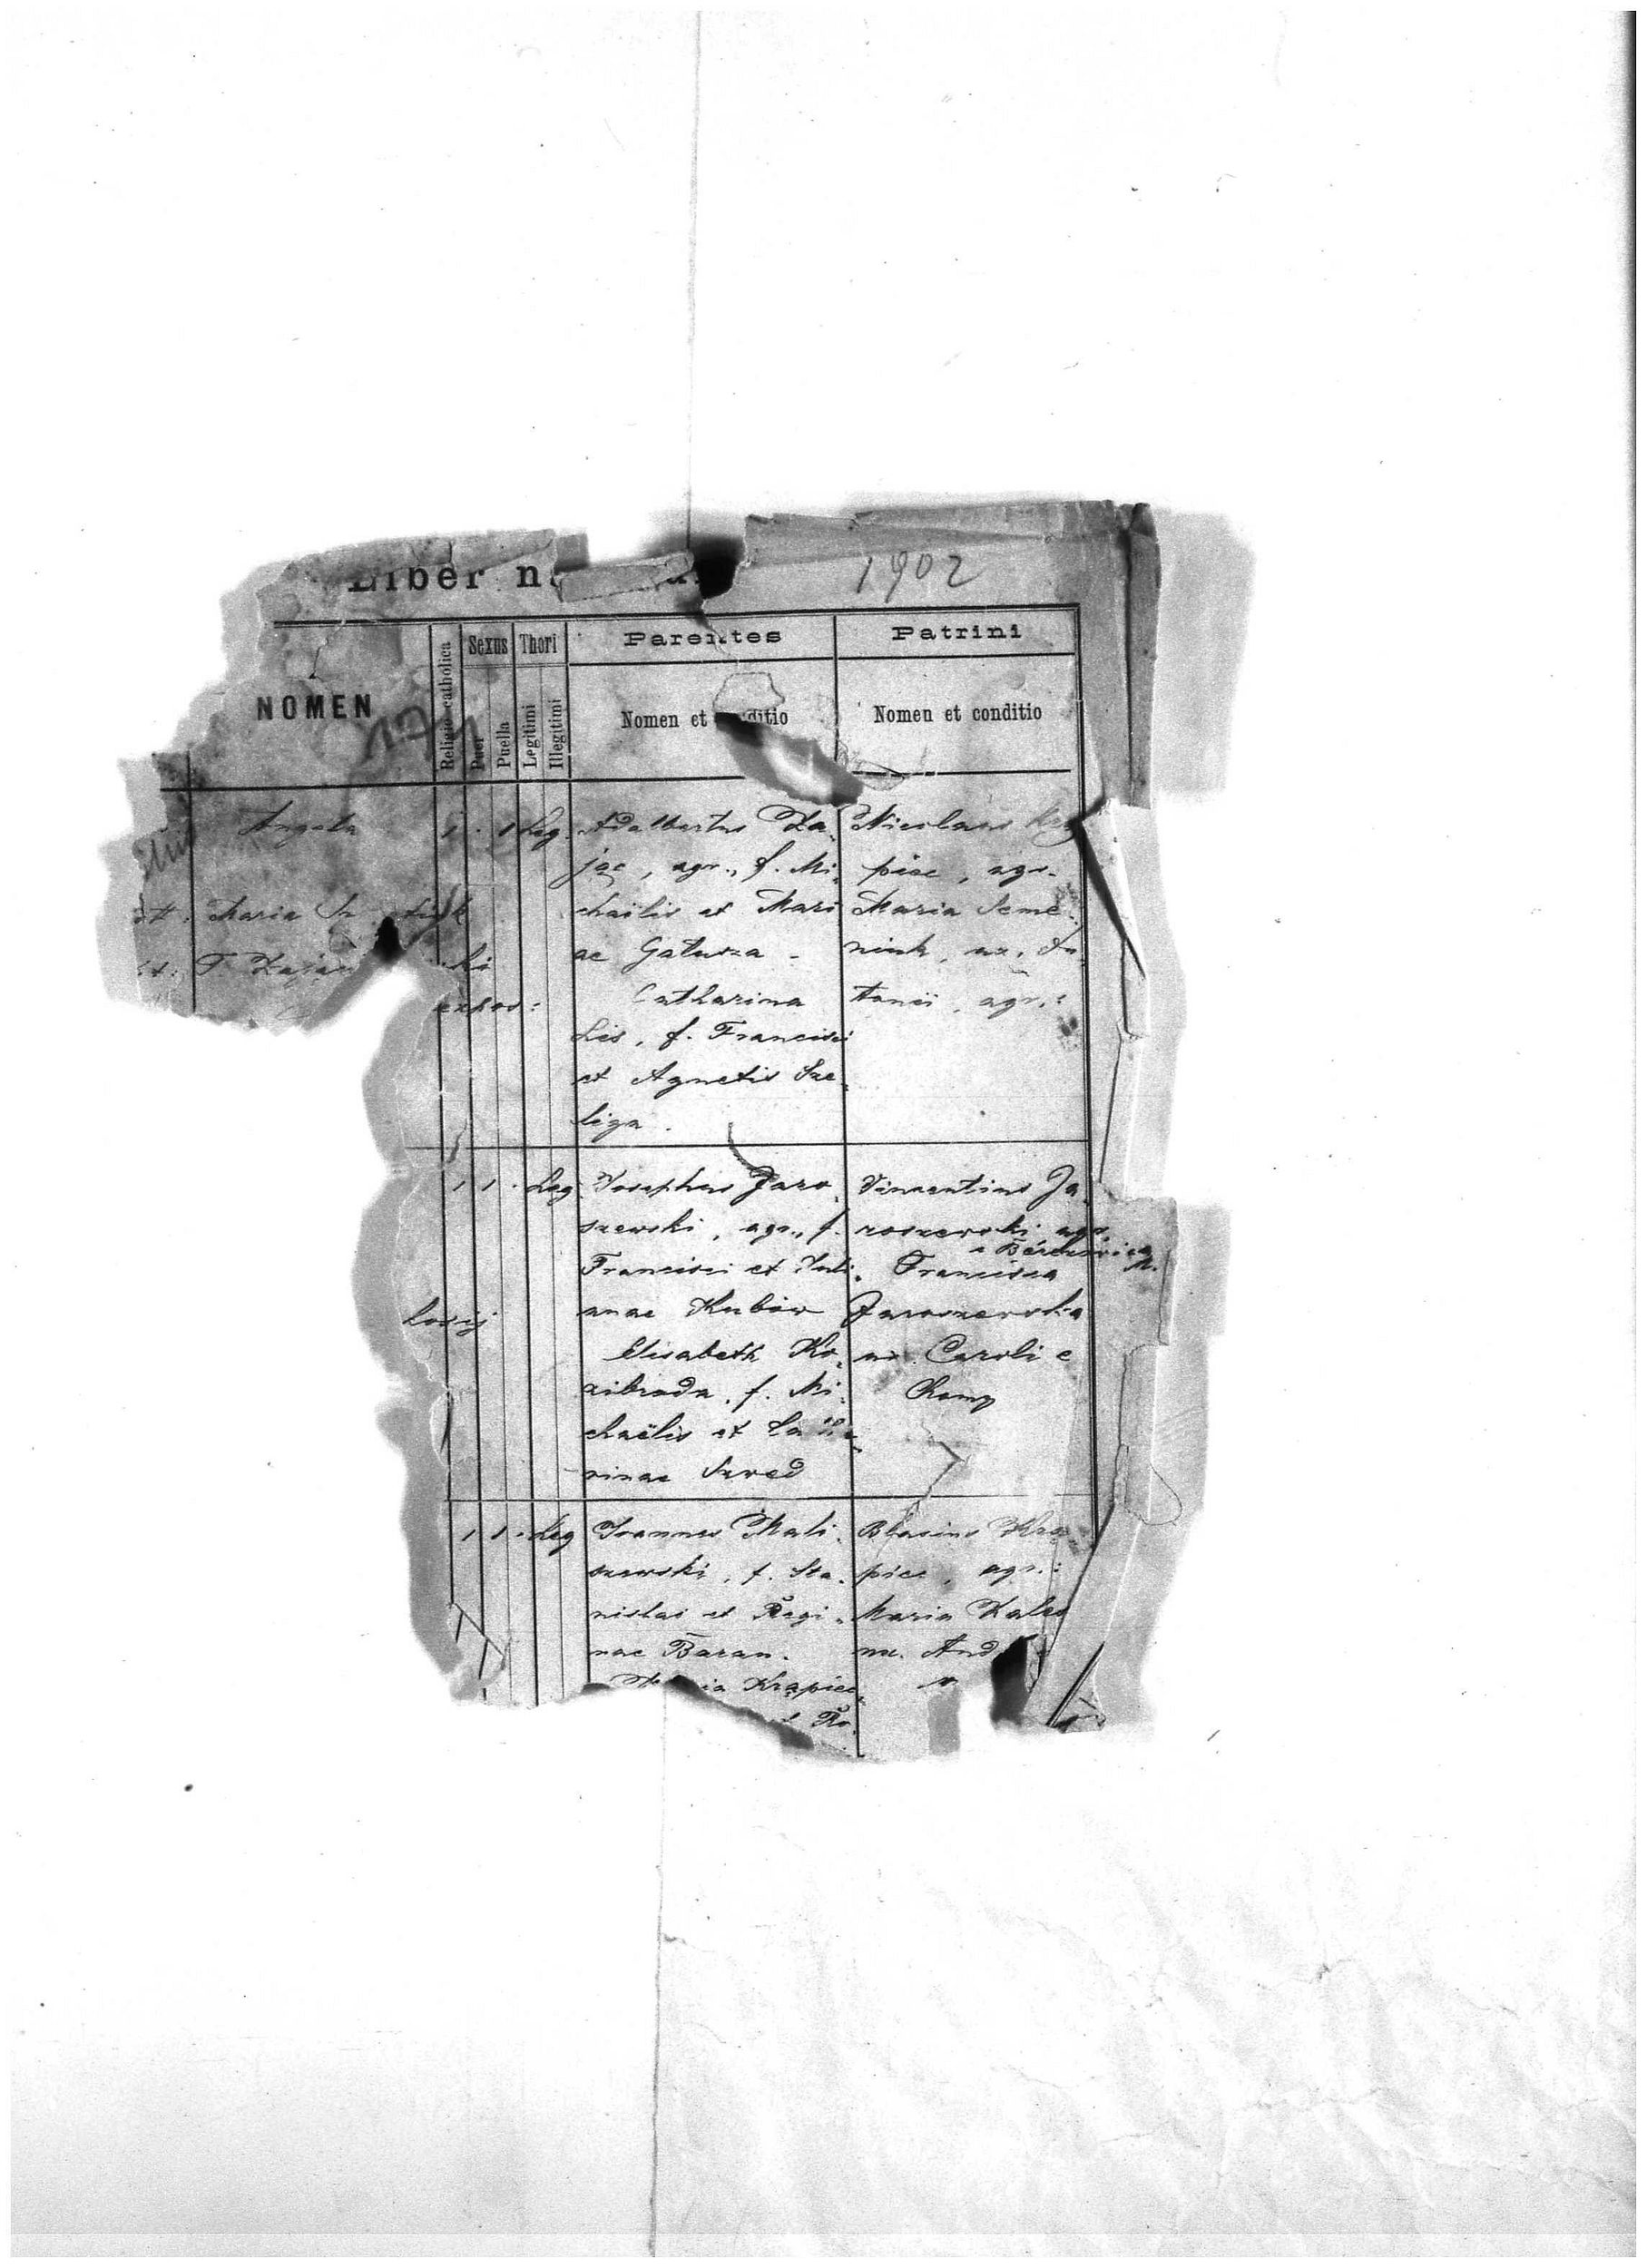 Liber n
1902
NOMEN
Religio catholica
Sexus
Puer
Puella
Thori
Legitimi
Illegitimi
Parentes
Nomen et conditio
Patrini
Nomen et conditio
Angela
1 . 1 Leg.
Maria
expos:
Adalbertus Za-
jac, agr., f. Mi-
chaëlis et Mari
ae Gałusza -
Catharina
Lis, f. Francisci
et Agnetis Sze-
liga.
Nicolaus Krą
piec, agr.
Maria Seme-
niuk, ux. An-
tonii, agr.:
1 1 . Leg
Josephus Jaro-
szewski, agr., f.
Francisci et Juli-
anae Kubów
Elisabeth Ko-
zibroda, f. Mi-
chaëlis et Catha-
rinae Szwed
Vincentius Ja-
roszewski, agr.
e Berezowica
M.
Francisca
Jaroszewska
ux. Caroli e
Chomy
1 1 . Leg
Joannes Mali-
szewski, f. Sta-
nislai et Regi-
nae Baran.
Krąpiec,
Ro-
Blasius Krą-
piec, agr.:
Maria Zales
ux. And